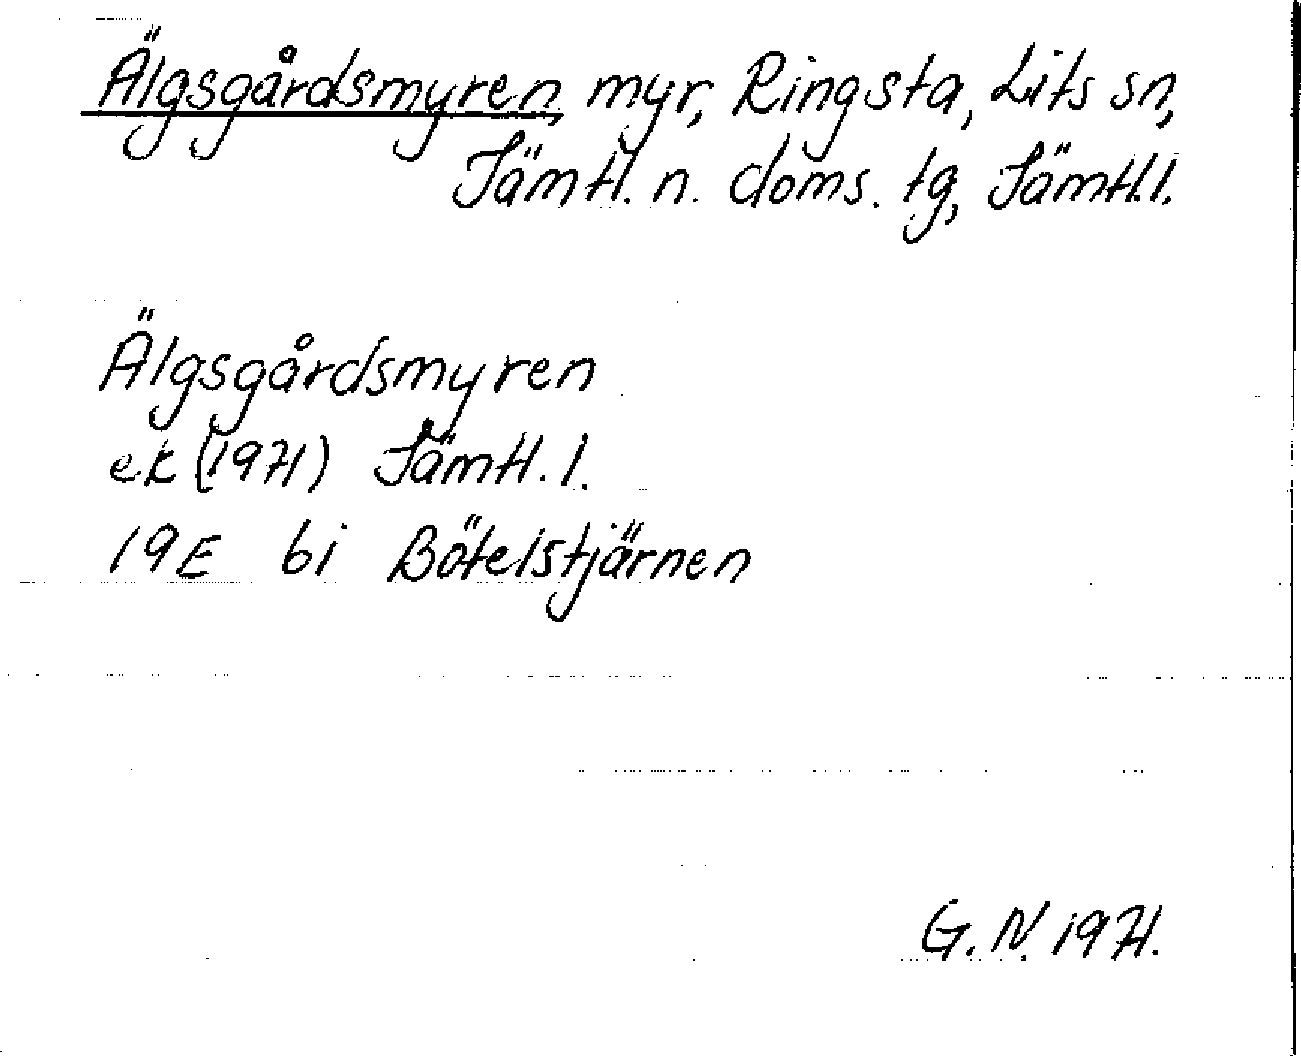 Älgsgårdsmyren, myr, Ringsta, Lits sn,
Jämtl. n. doms. tg, Jämtl.l.
Älgsgårdsmyren
ek (1971) Jämtl. l.
19E bi Bötelstjärnen
G. N. 1971.